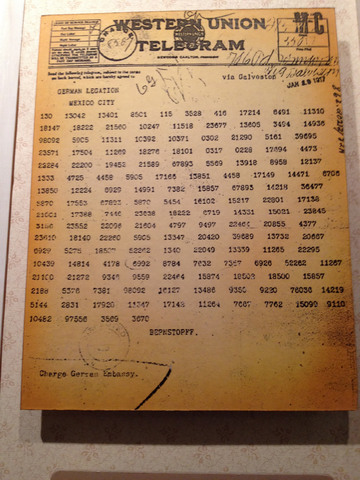 WESTERN UNION
TELEGRAM
NEWCOMB CARLTON, PRESIDENT
Send the following telegram, subject to the terms
on back hereof, which are hereby agreed to
via Galveston
JAN 19 1917
GERMAN LEGATION
MEXICO CITY
130 13042 13401 8501 115 3528 416 17214 6491 11310
18147 18222 21560 10247 11518 23677 13605 3494 14936
98092 5905 11311 10392 10371 0302 21290 5161 39695
23571 17504 11269 18276 18101 0317 0228 17894 4473
22284 22200 19452 21589 67893 5569 13918 8958 12137
1333 4725 4458 5905 17166 13851 4458 17149 14471 6706
13850 12224 6929 14991 7382 15857 67893 14218 36477
5870 17553 67893 5870 5454 16102 15217 22801 17138
21001 17388 7446 23638 18222 6719 14331 15021 23845
3156 23552 22096 21604 4797 9497 22464 20855 4377
23610 18140 22260 5905 13347 20420 39689 13732 20667
6929 5275 18507 52262 1340 22049 13339 11265 22295
10439 14814 4178 6992 8784 7632 7357 6926 52262 11267
21100 21272 9346 9559 22464 15874 18502 18500 15857
2188 5376 7381 98092 16127 13486 9350 9220 76036 14219
5144 2831 17920 11347 17142 11264 7667 7762 15099 9110
10482 97556 3569 3670
BERNSTORFF.
Charge German Embassy.